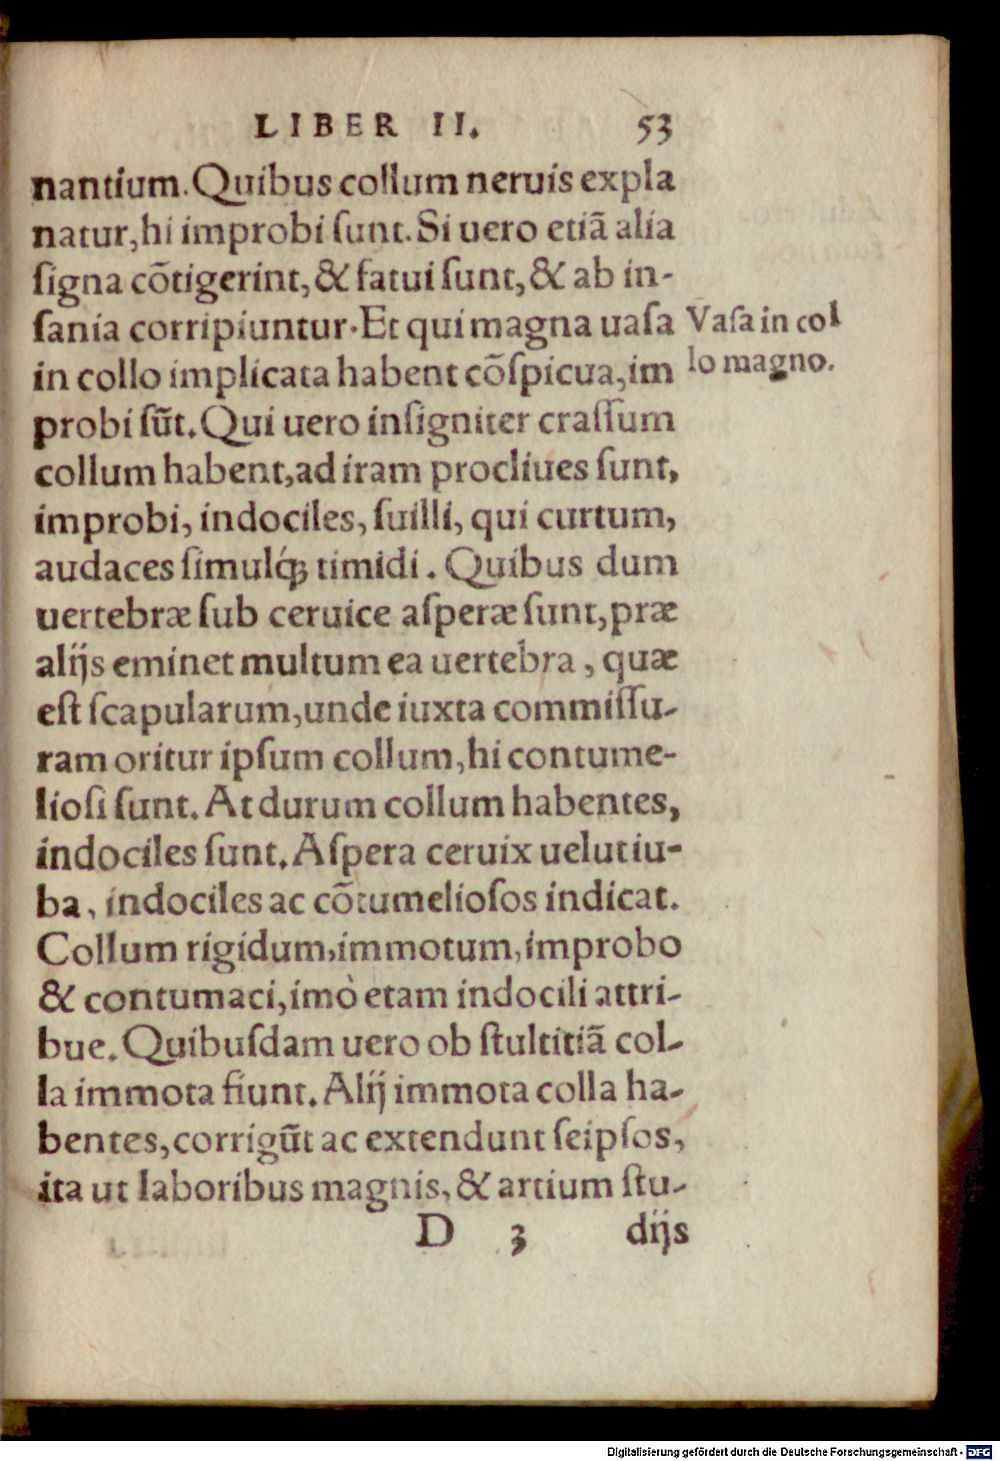 LIBER II. 53
nantium. Quibus collum neruis expla
natur, hi improbi ſunt. Si uero etiã alia
ſigna cõtigerint, & fatui ſunt, & ab in-
ſania corripiuntur. Et qui magna uaſa
in collo implicata habent cõſpicua, im
probi ſũt. Qui uero inſigniter craſſum
collum habent, ad iram procliues ſunt,
improbi, indociles, ſuilli, qui curtum,
audaces ſimulq́; timidi. Quibus dum
uertebræ ſub ceruice aſperæ ſunt, præ
alijs eminet multum ea uertebra, quæ
eſt ſcapularum, unde iuxta commiſſu-
ram oritur ipſum collum, hi contume-
lioſi ſunt. At durum collum habentes,
indociles ſunt. Aſpera ceruix uelut iu-
ba, indociles ac cõtumelioſos indicat.
Collum rigidum, immotum, improbo
& contumaci, imò etam indocili attri-
bue. Quibuſdam uero ob ſtultitiã col-
la immota fiunt. Alij immota colla ha-
bentes, corrigũt ac extendunt ſeipſos,
ita ut laboribus magnis, & artium ſtu-
D 3 dijs
Vaſa in col
lo magno.
Digitalisierung gefördert durch die Deutsche Forschungsgemeinschaft - DFG